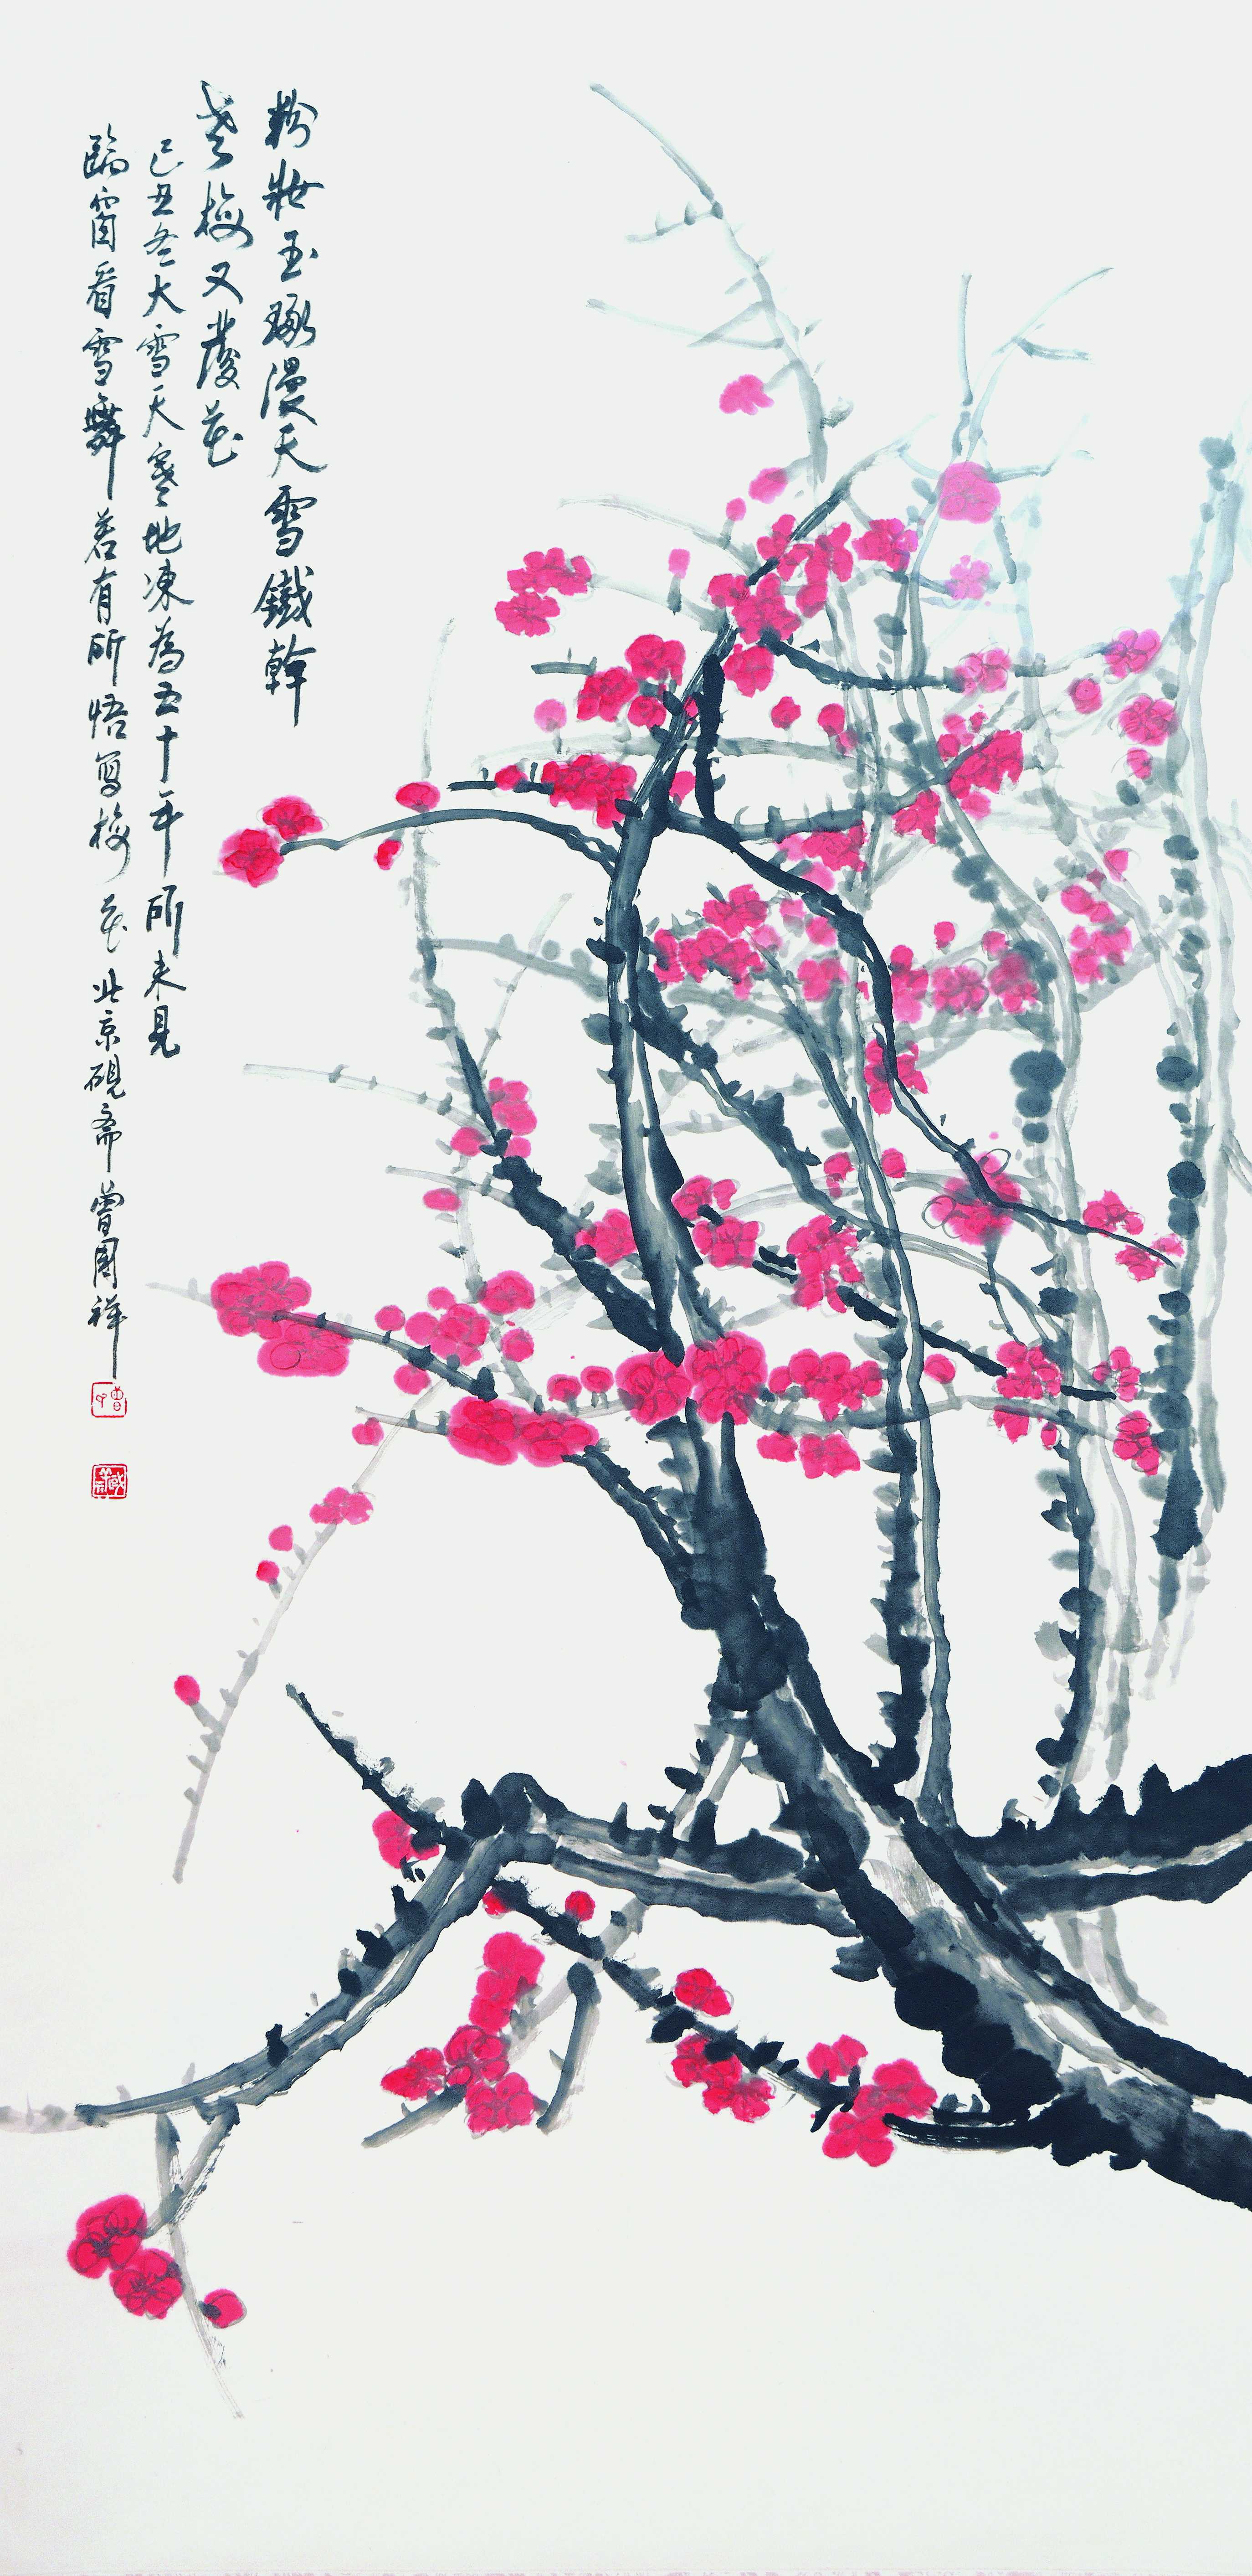 粉妝玉琢漫天雪鐵幹
老梅又發花
己丑冬大雪天寒地凍為五十年所未見
臨窗看雪舞若有所悟寫梅花北京硯齋曾國祥